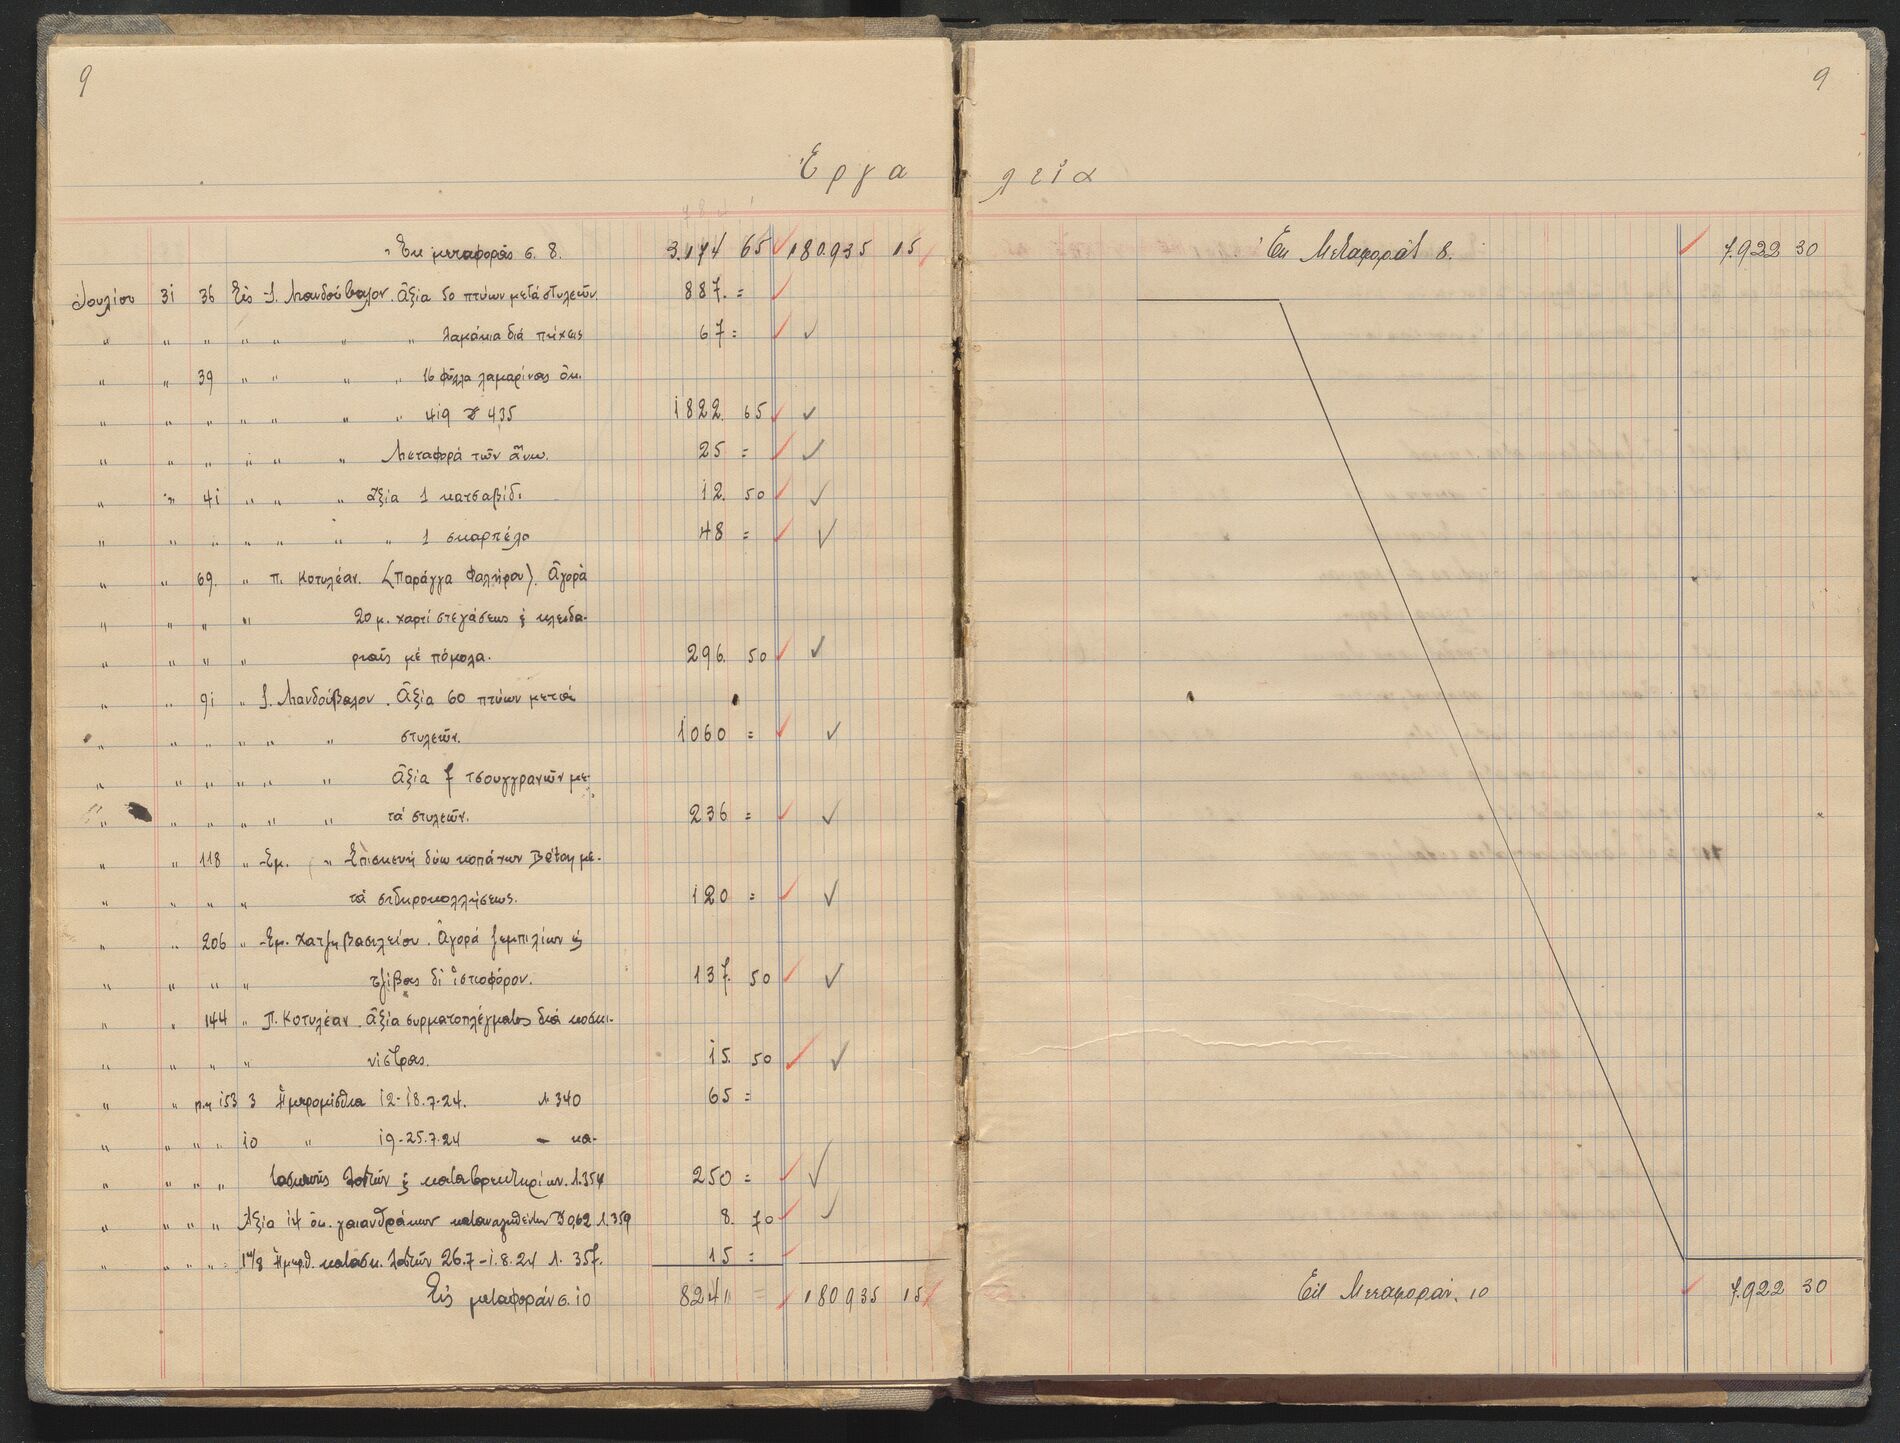 9
Ἐργα
Ἐκ μεταφορᾶς σ. 8. 3.174 65 180.935 15
Ἰουλίου 31 36 Εἰς Ι. Μανδούβαλον. Ἀξία 50 πτύων μετά στυλεῶν 887. =
" " " " " " " λαμάκια διά πήχεις 67 =
" " 39 " " " " 16 φύλλα λαμαρίνας ὀκ.
" " " " " " " 419 435 1822. 65
" " " " " " Μεταφορά τῶν ἄνω. 25 =
" " 41 " " " ἀξία 1 κατσαβίδι 12. 50
" " " " " " " 1 σκαρπέλο 48 =
" " 69. " Π. Κοτυλέαν. (Παράγγα Φαλήρου). Ἀγορά
" " " " 20 μ. χαρτί στεγάσεως & κλειδα-
" " " " ριαῖς μέ πόμολα. 296. 50
" " 91 " Ι. Μανδούβαλον. Ἀξία 60 πτύων μετά
" " " " " " στυλεῶν. 1060 =
" " " " " " Ἀξία 7 τσουγγρανῶν με-
" " " " " " τά στυλεῶν. 236 =
" " 118 " Εμ. " Ἐπισκευή δύω κοπάνων Beton με-
" " " " τά σιδηροκολλήσεως. 120 =
" " 206 " Εμ. Χατζηβασιλείου. Ἀγορά ζεμπιλίων &
" " " " τζίβας δι' ἱστιοφόρον. 137. 50
" " 144 " Π. Κοτυλέαν. Ἀξία συρματοπλέγματος διά κοσκι-
" " " " νίστρας. 15. 50
" " 153 3 Ἡμερομίσθια 12-18.7.24. λ 340 65 =
" " " " 10 " 19-25.7.24 - κα-
" " " " τασκευῆς & καταβρεκτηρίων. λ.354 250 =
" " " " Ἀξία 14 ὀκ. γαιανθράκων καταναλωθέντων 0,62 λ.359 8. 70
" " " " Ἡμερθ. κατασκ. 26.7-1.8.24 λ. 357. 15 =
Εἰς μεταφοράν σ. 10 8241 " = 180935 15
9
λεῖα
Ἐκ Μεταφορᾶς 8. 7.922 30
Εἰς Μεταφοράν. 10 7.922 30